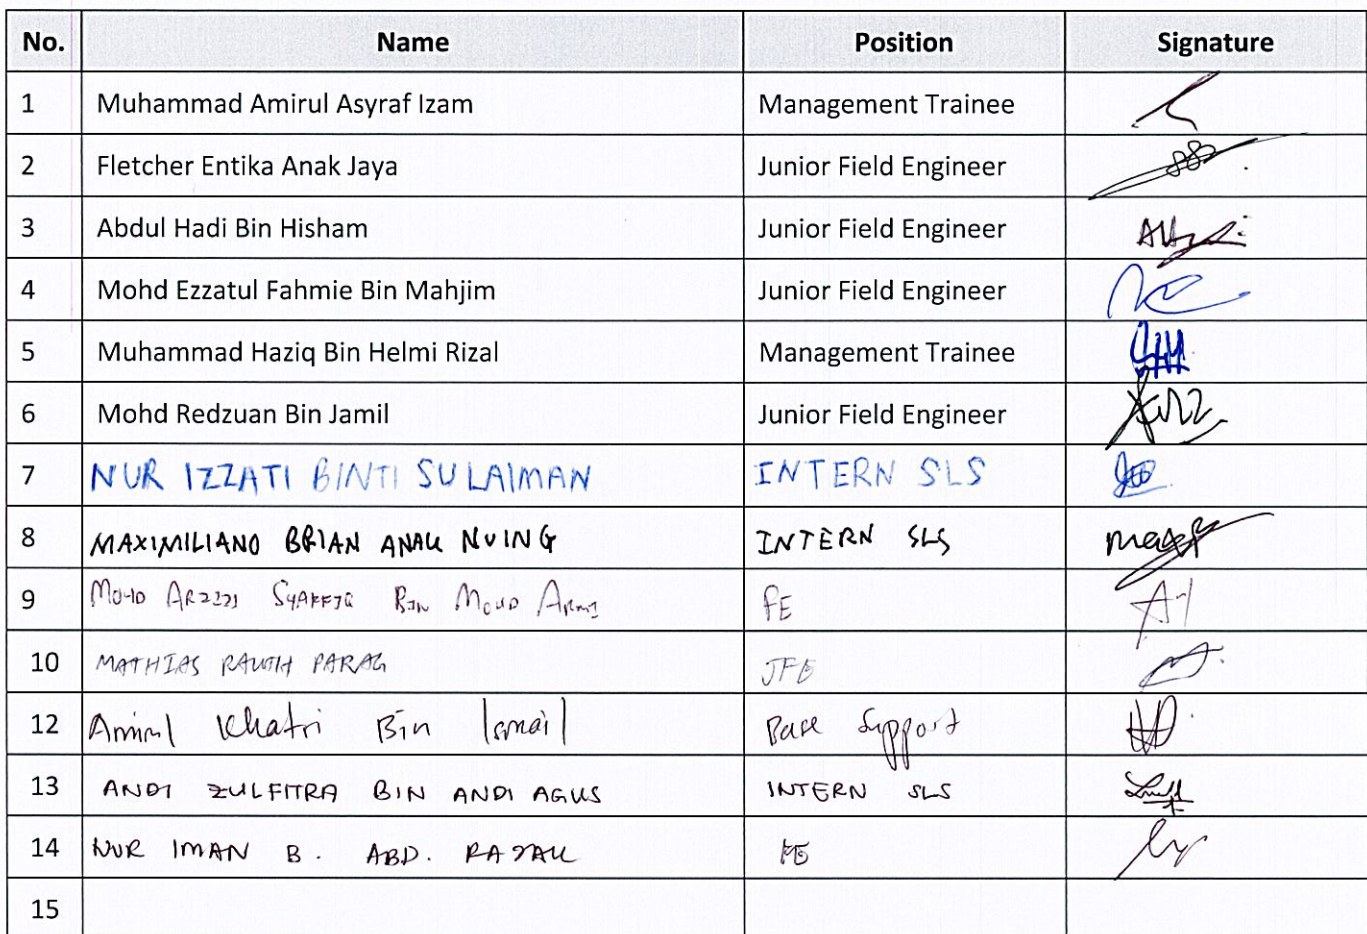 No. Name Position Signature
1 Muhammad Amirul Asyraf Izam Management Trainee
2 Fletcher Entika Anak Jaya Junior Field Engineer
3 Abdul Hadi Bin Hisham Junior Field Engineer
4 Mohd Ezzatul Fahmie Bin Mahjim Junior Field Engineer
5 Muhammad Haziq Bin Helmi Rizal Management Trainee
6 Mohd Redzuan Bin Jamil Junior Field Engineer
7 NUR IZZATI BINTI SULAIMAN INTERN SLS
8 MAXIMILIANO BRIAN ANAK NUING INTERN SLS
9 MOHD SYAFFIQ BIN MOHD FE
10 MATHIAS PARAG JFE
12 Amirul Khatri Bin Ismail Base Support
13 ANDI ZULFITRA BIN ANDI AGUS INTERN SLS
14 NUR IMAN B. ABD. RAZAK FE
15